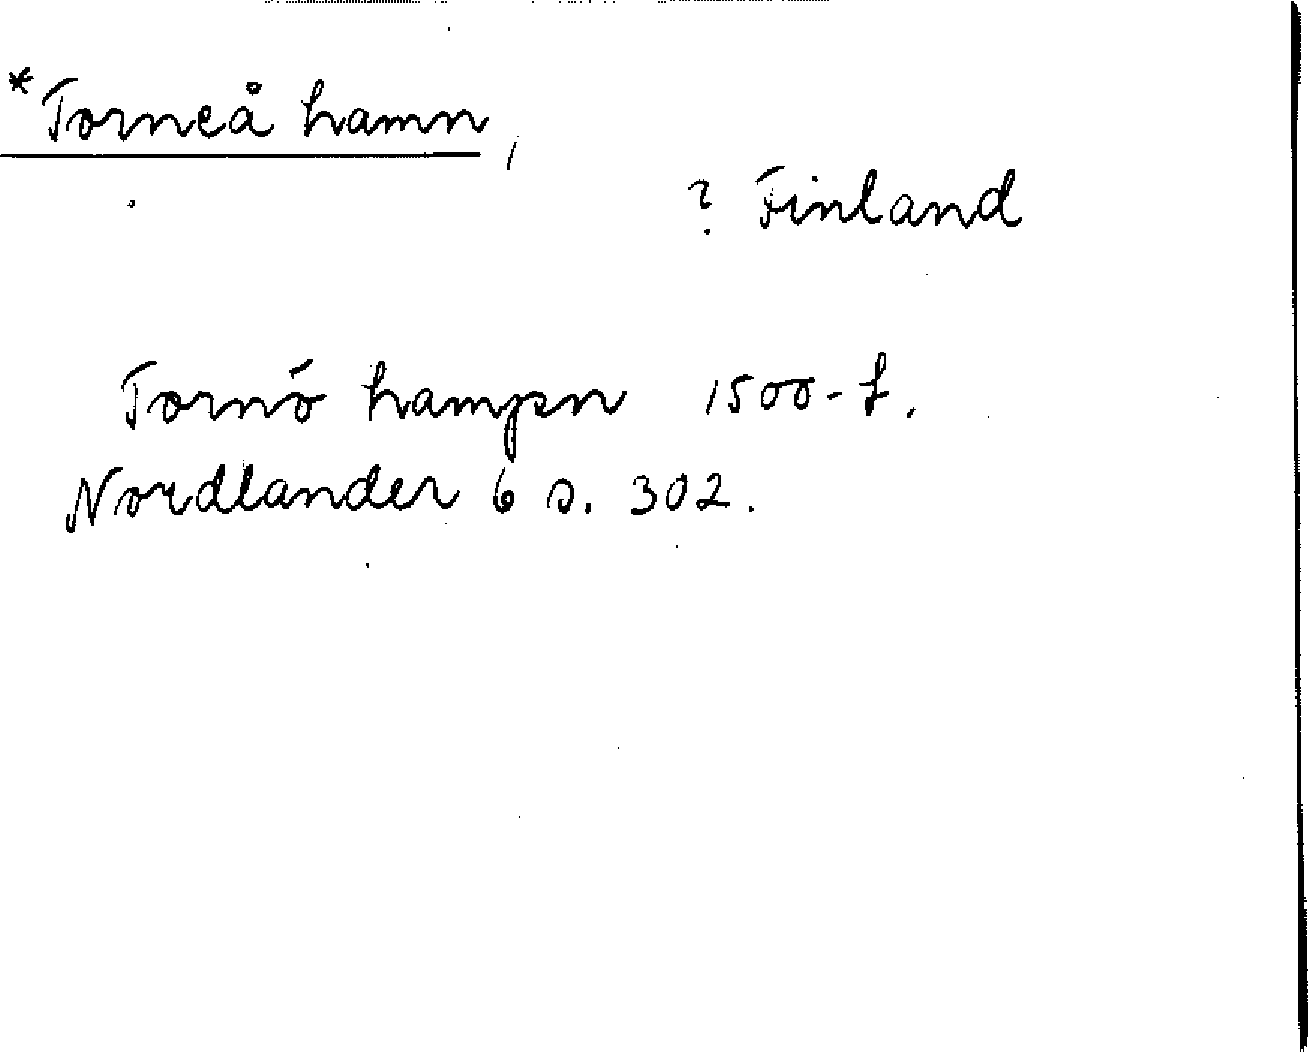 *Torneå hamn,
? Finland
Tornö hampn 1500-t.
Nordlander 6 s. 302.